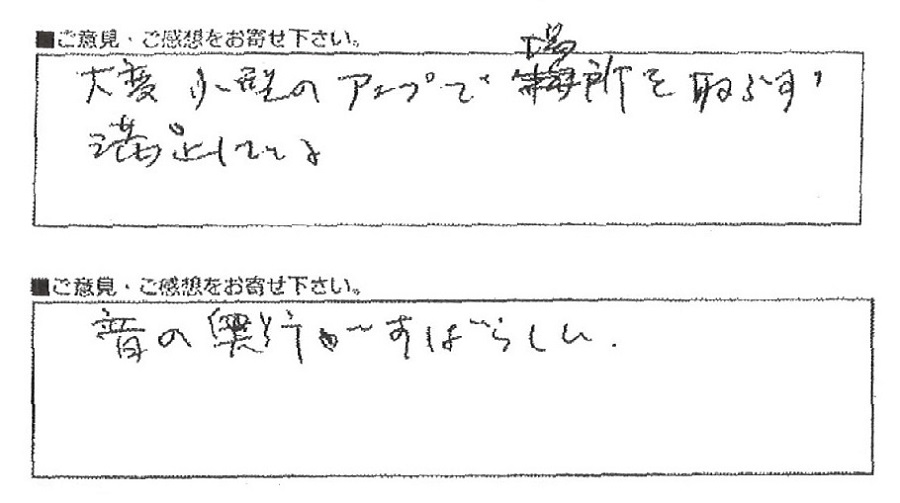 ■ご意見・ご感想をお寄せ下さい。
大変小型のアンプで場所を取らず、
満足してる
■ご意見・ご感想をお寄せ下さい。
音の奥行がすばらしい.